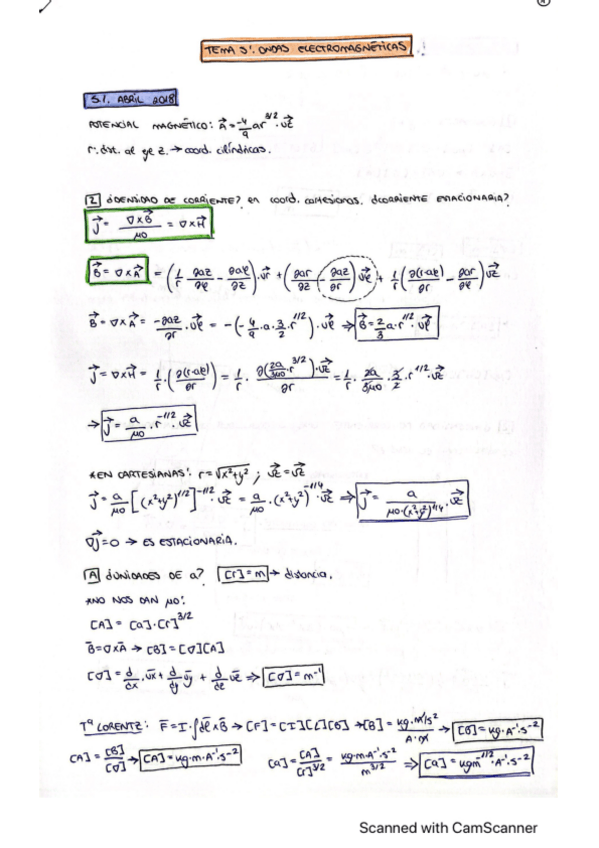 TEMA 5: ONDAS ELECTROMAGNÉTICAS.
5.1. ABRIL 2018
POTENCIAL MAGNÉTICO: A⃗ = -4/9 a r^3/2 · uz⃗
r: dist. al eje z. → coord. cilíndricas.
2 ¿DENSIDAD DE CORRIENTE? en coord. cartesianas. ¿CORRIENTE ESTACIONARIA?
J⃗ = ∇×B⃗/μ0 = ∇×H⃗
B⃗ = ∇×A⃗ = (1/r ∂az/∂φ - ∂aφ/∂z) · ur⃗ + (∂ar/∂z - ∂az/∂r) uφ⃗ + 1/r (∂(r·aφ)/∂r - ∂ar/∂φ) uz⃗
B⃗ = ∇×A⃗ = -∂az/∂r · uφ⃗ = -(-4/9 · a · 3/2 · r^1/2) · uφ⃗ ⇒ B⃗ = 2/3 a · r^1/2 · uφ⃗
J⃗ = ∇×H⃗ = 1/r · (∂(r·aφ)/∂r) = 1/r · ∂(2a/3μ0 · r^3/2) · uz⃗/∂r = 1/r · 2a/3μ0 · 3/2 · r^1/2 · uz⃗
→ J⃗ = a/μ0 · r^-1/2 · uz⃗
*EN CARTESIANAS: r = √x²+y² ; uz⃗ = uz⃗
J⃗ = a/μ0 [(x²+y²)^1/2]^-1/2 · uz⃗ = a/μ0 · (x²+y²)^-1/4 · uz⃗ ⇒ J⃗ = a/μ0·(x²+y²)^1/4 · uz⃗
∇J⃗ = 0 → ES ESTACIONARIA.
A ¿UNIDADES DE a? [r] = m → distancia.
*NO NOS DAN μ0:
[A] = [a]·[r]^3/2
B̄ = ∇×Ā → [B] = [∇][A]
[∇] = d/dx · ux⃗ + d/dy uy⃗ + d/dz uz⃗ ⇒ [∇] = m⁻¹
Tª LORENTZ: F̄ = I·∫dl⃗ × B⃗ → [F] = [I][L][B] → [B] = kg·m/s²/A·m → [B] = kg·A⁻¹·s⁻²
[A] = [B]/[∇] → [A] = kg·m·A⁻¹·s⁻² [a] = [A]/[r]^3/2 = kg·m·A⁻¹·s⁻²/m^3/2 ⇒ [a] = kgm^-1/2·A⁻¹·s⁻²
Scanned with CamScanner